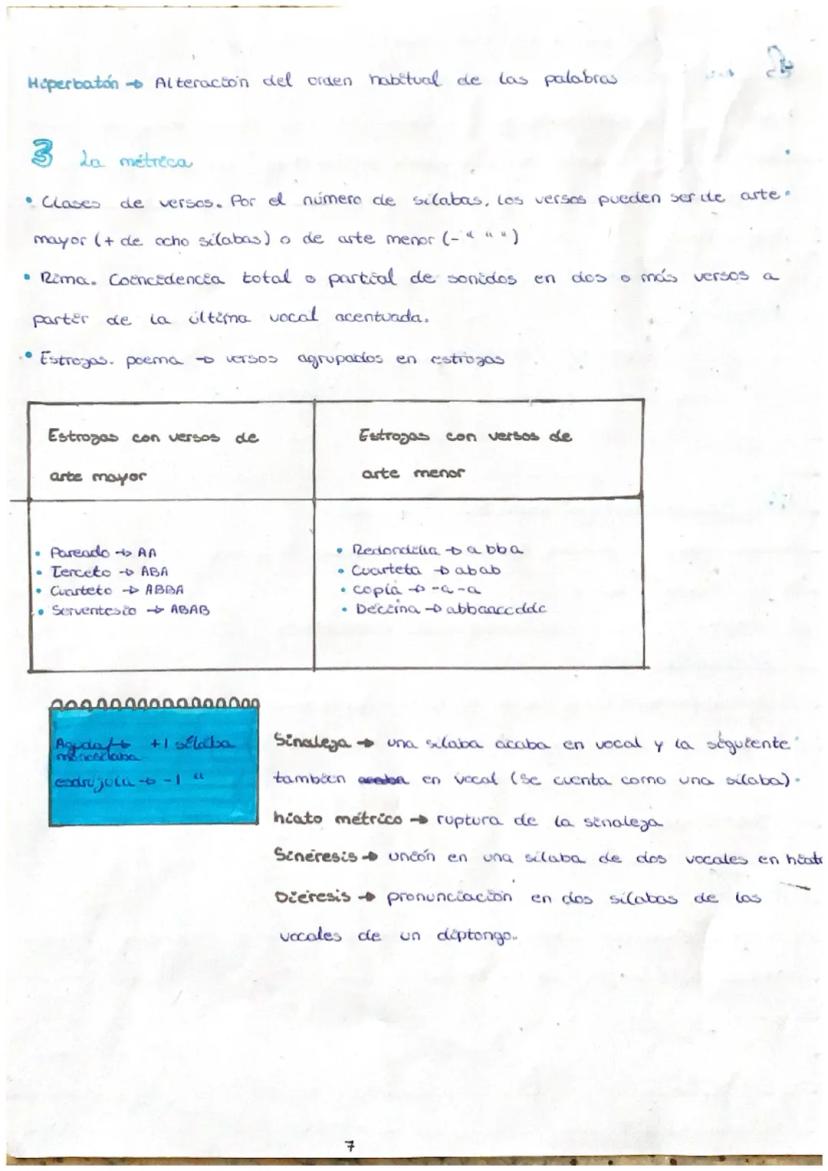 Hiperbatón → Alteración del orden habitual de las palabras
3 La métrica
• Clases de versos. Por el número de sílabas, los versos pueden ser de arte
mayor (+ de ocho sílabas) o de arte menor (- " " ")
• Rima. Coincidencia total o partial de sonidos en dos o más versos a
partir de la última vocal acentuada.
• Estrofas. poema → versos agrupados en estrofas
Estrofas con versos de
arte mayor
Estrofas con versos de
arte menor
• Pareado → AA
• Terceto → ABA
• Cuarteto → ABBA
• Serventesio → ABAB
• Redondilla → abba
• Cuarteta → abab
• copla → -a-a
• Décima → abbaaccddc
Aguda/ → +1 sílaba
monosílaba
esdrújula → -1 "
Sinalefa → una sílaba acaba en vocal y la siguiente
también en vocal (se cuenta como una sílaba).
hiato métrico → ruptura de la sinalefa
Sinéresis → unión en una sílaba de dos vocales en hiato
Diéresis → pronunciación en dos sílabas de las
vocales de un diptongo.
7